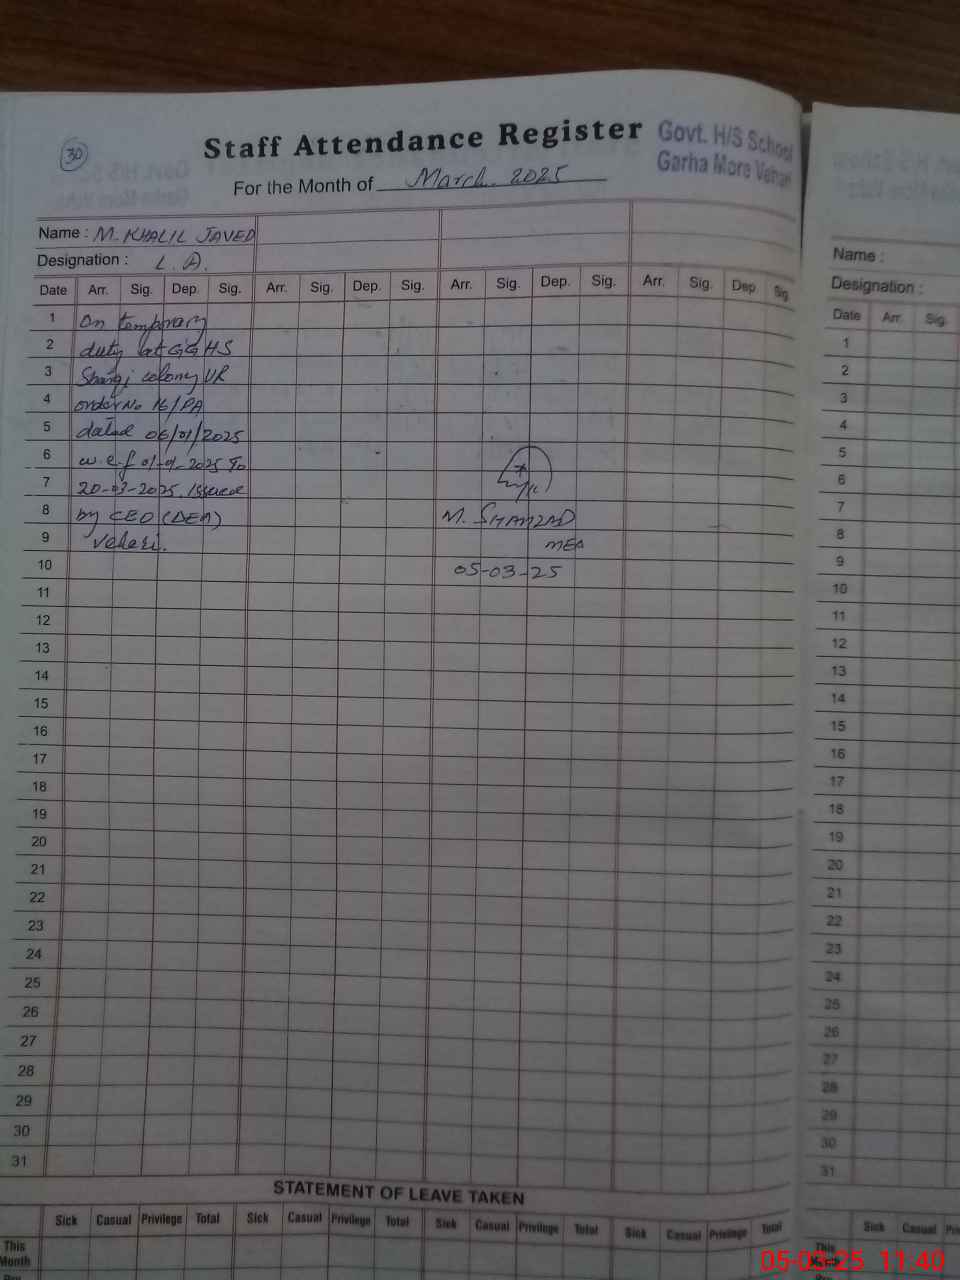 30
Staff Attendance Register
Govt. H/S School
Garha More Vehari
For the Month of March 2025
Name : M. KHALIL JAVED
Designation : L.A.
Date Arr. Sig. Dep. Sig. Arr. Sig. Dep. Sig. Arr. Sig. Dep. Sig. Arr. Sig. Dep. Sig.
1 On temporary
2 duty at GGHS
3 colony VR
4 order No 16/PA
5 dated 06/01/2025
6 w.e.f 01-01-2025 To
7 20-03-2025. Issued
8 by CEO (DEA)
9 Vehari.
M. SHAHZAD
MEA
10 05-03-25
11
12
13
14
15
16
17
18
19
20
21
22
23
24
25
26
27
28
29
30
31
STATEMENT OF LEAVE TAKEN
Sick Casual Privilege Total Sick Casual Privilege Total Sick Casual Privilege Total Sick Casual Privilege Total
This
Month
Name :
Designation :
Date Arr. Sig.
1
2
3
4
5
6
7
8
9
10
11
12
13
14
15
16
17
18
19
20
21
22
23
24
25
26
27
28
29
30
31
Sick Casual
This
Month
05-03-25 11:40